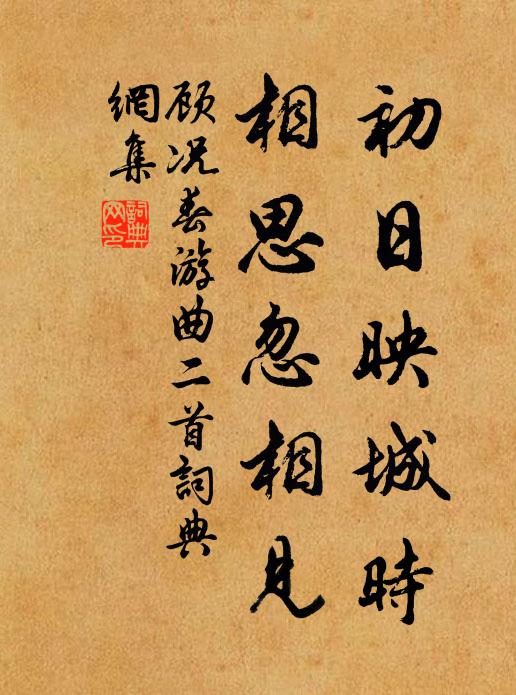 初日映城時
相思忽相見
顧况春游曲二首詞典
網集
詞典
网印